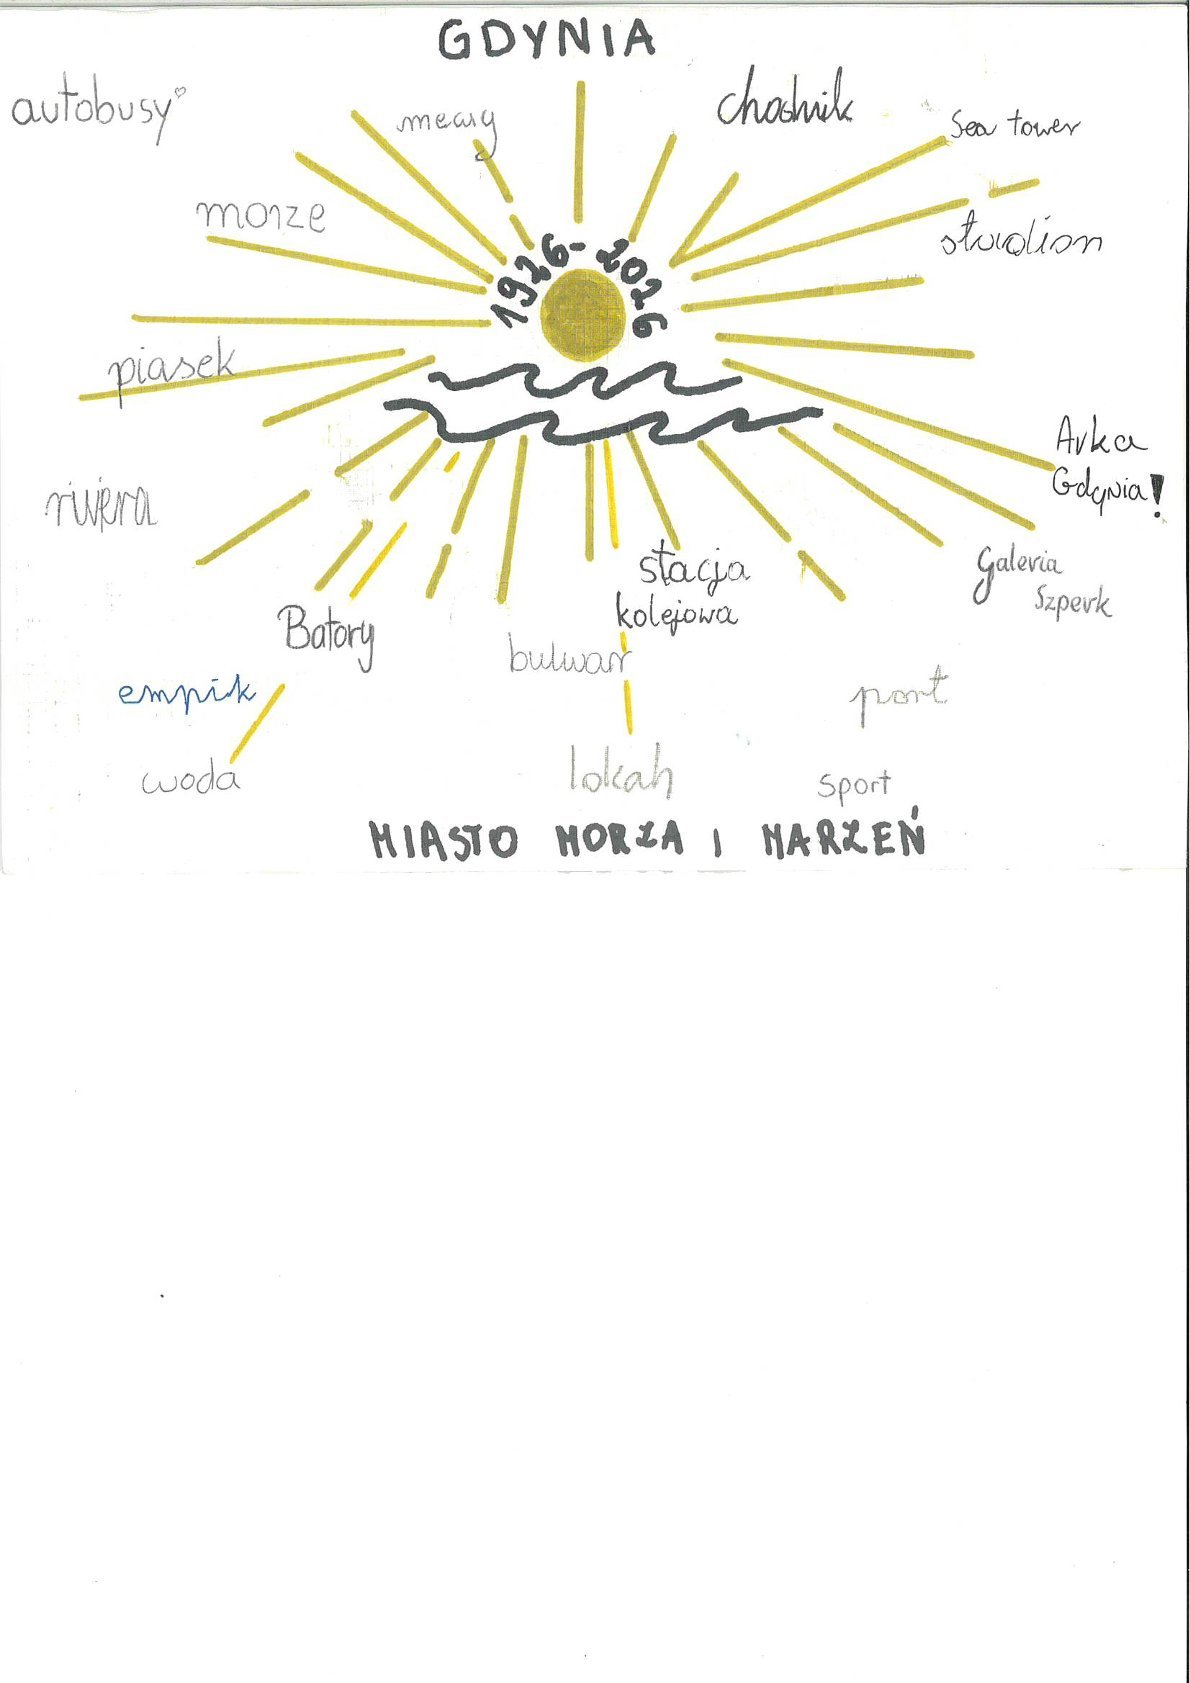 GDYNIA
autobusy
mewy
chodnik
Sea tower
morze
stadion
1926-2026
piasek
Arka
Gdynia!
riwiera
stacja
kolejowa
Galeria
Szperk
Batory
bulwar
empik
port
woda
sport
MIASTO MORZA I MARZEŃ